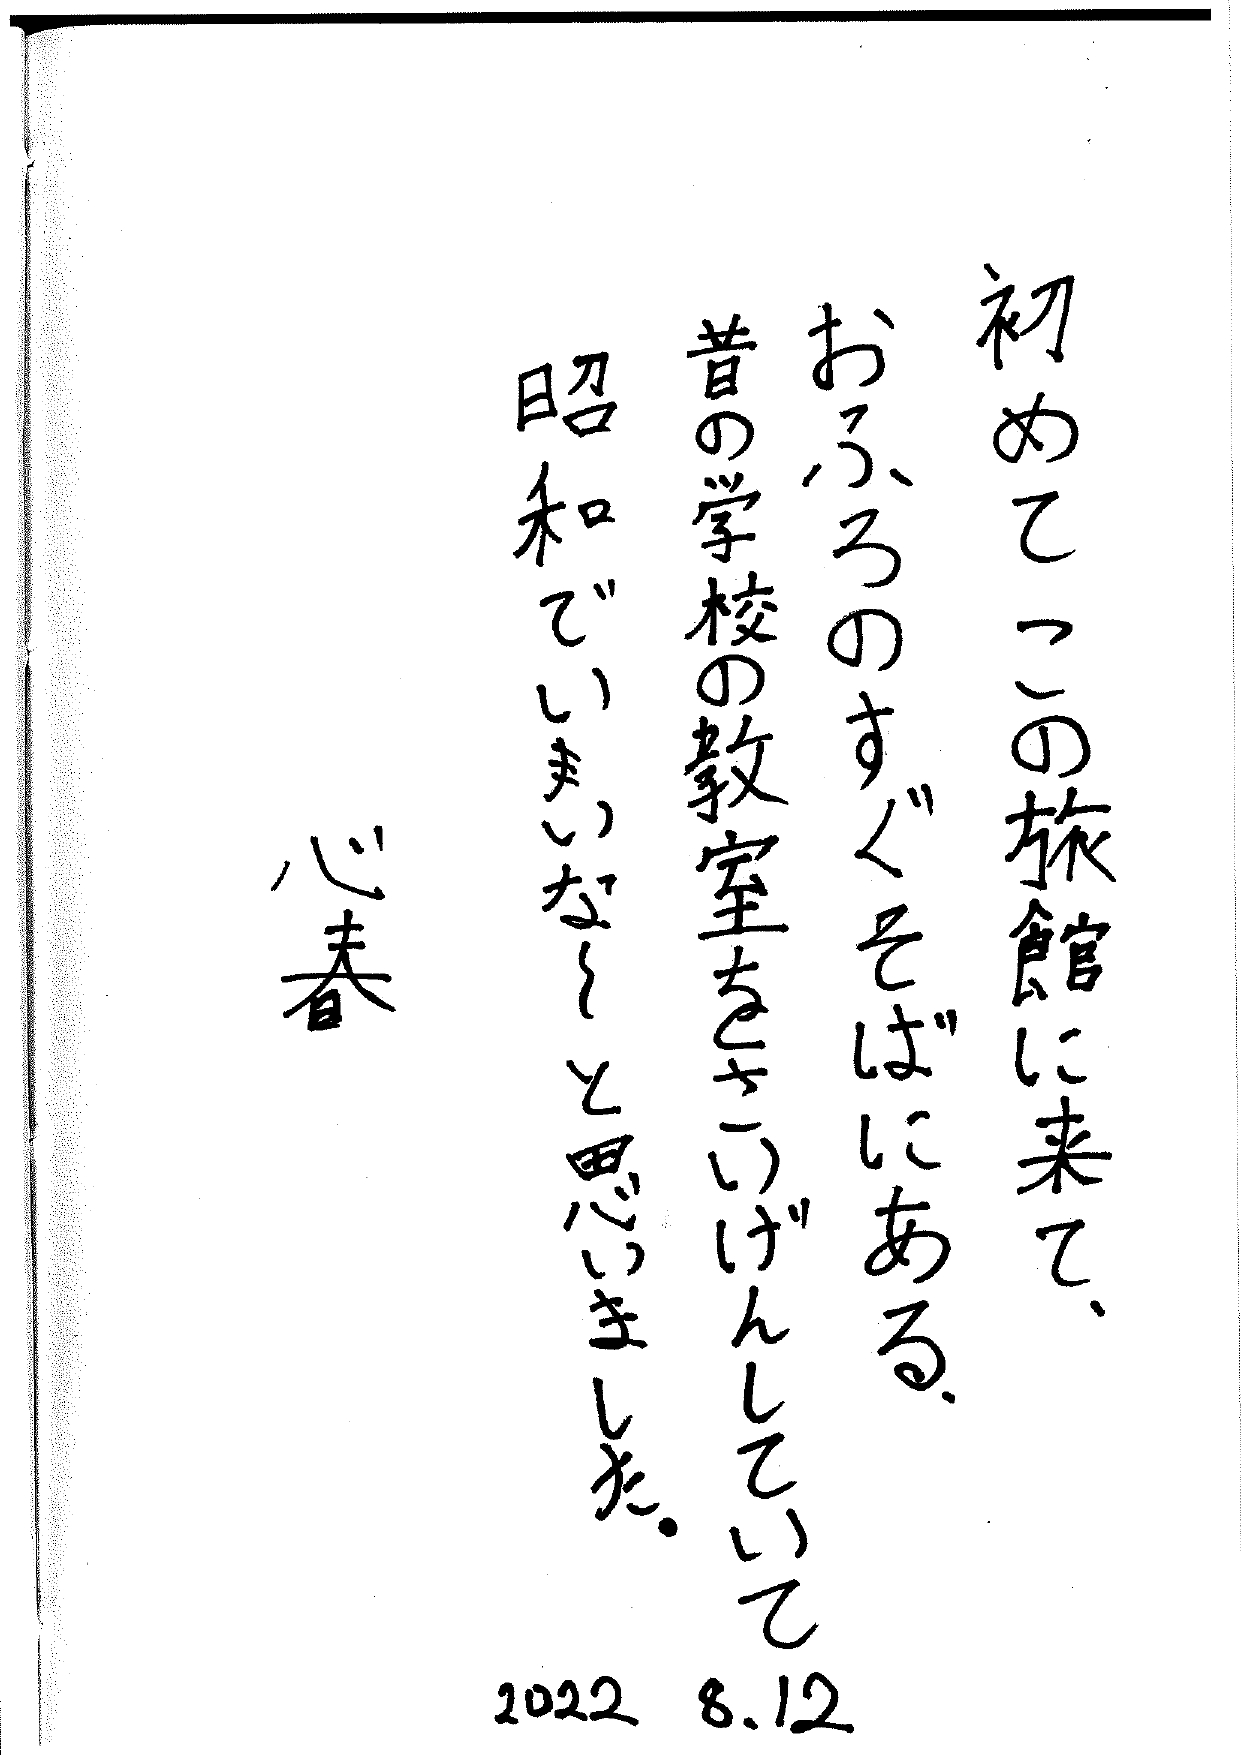 初めてこの旅館に来て、
おふろのすぐそばにある、
昔の学校の教室をさいげんしていて
昭和でいまいな〜と思いました。
心春
2022 8.12